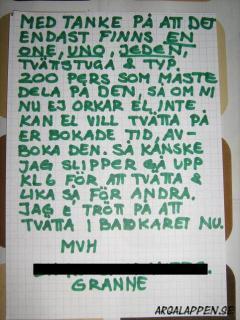 MED TANKE PÅ ATT DET
ENDAST FINNS EN
ONE, UNO, JEDEN,
TVÄTSTUGA & TYP.
200 PERS SOM MÅSTE
DELA PÅ DEN, SÅ OM NI
NU EJ ORKAR EL INTE
KAN EL VILL TVÄTTA PÅ
ER BOKADE TID, AV-
BOKA DEN. SÅ KANSKE
JAG SLIPPER GÅ UPP
KL 6 FÖR ATT TVÄTTA &
LIKA SÅ FÖR ANDRA.
JAG E TRÖTT PÅ ATT
TVÄTTA I BADKARET NU.
MVH
GRANNE
ARGALAPPEN.SE